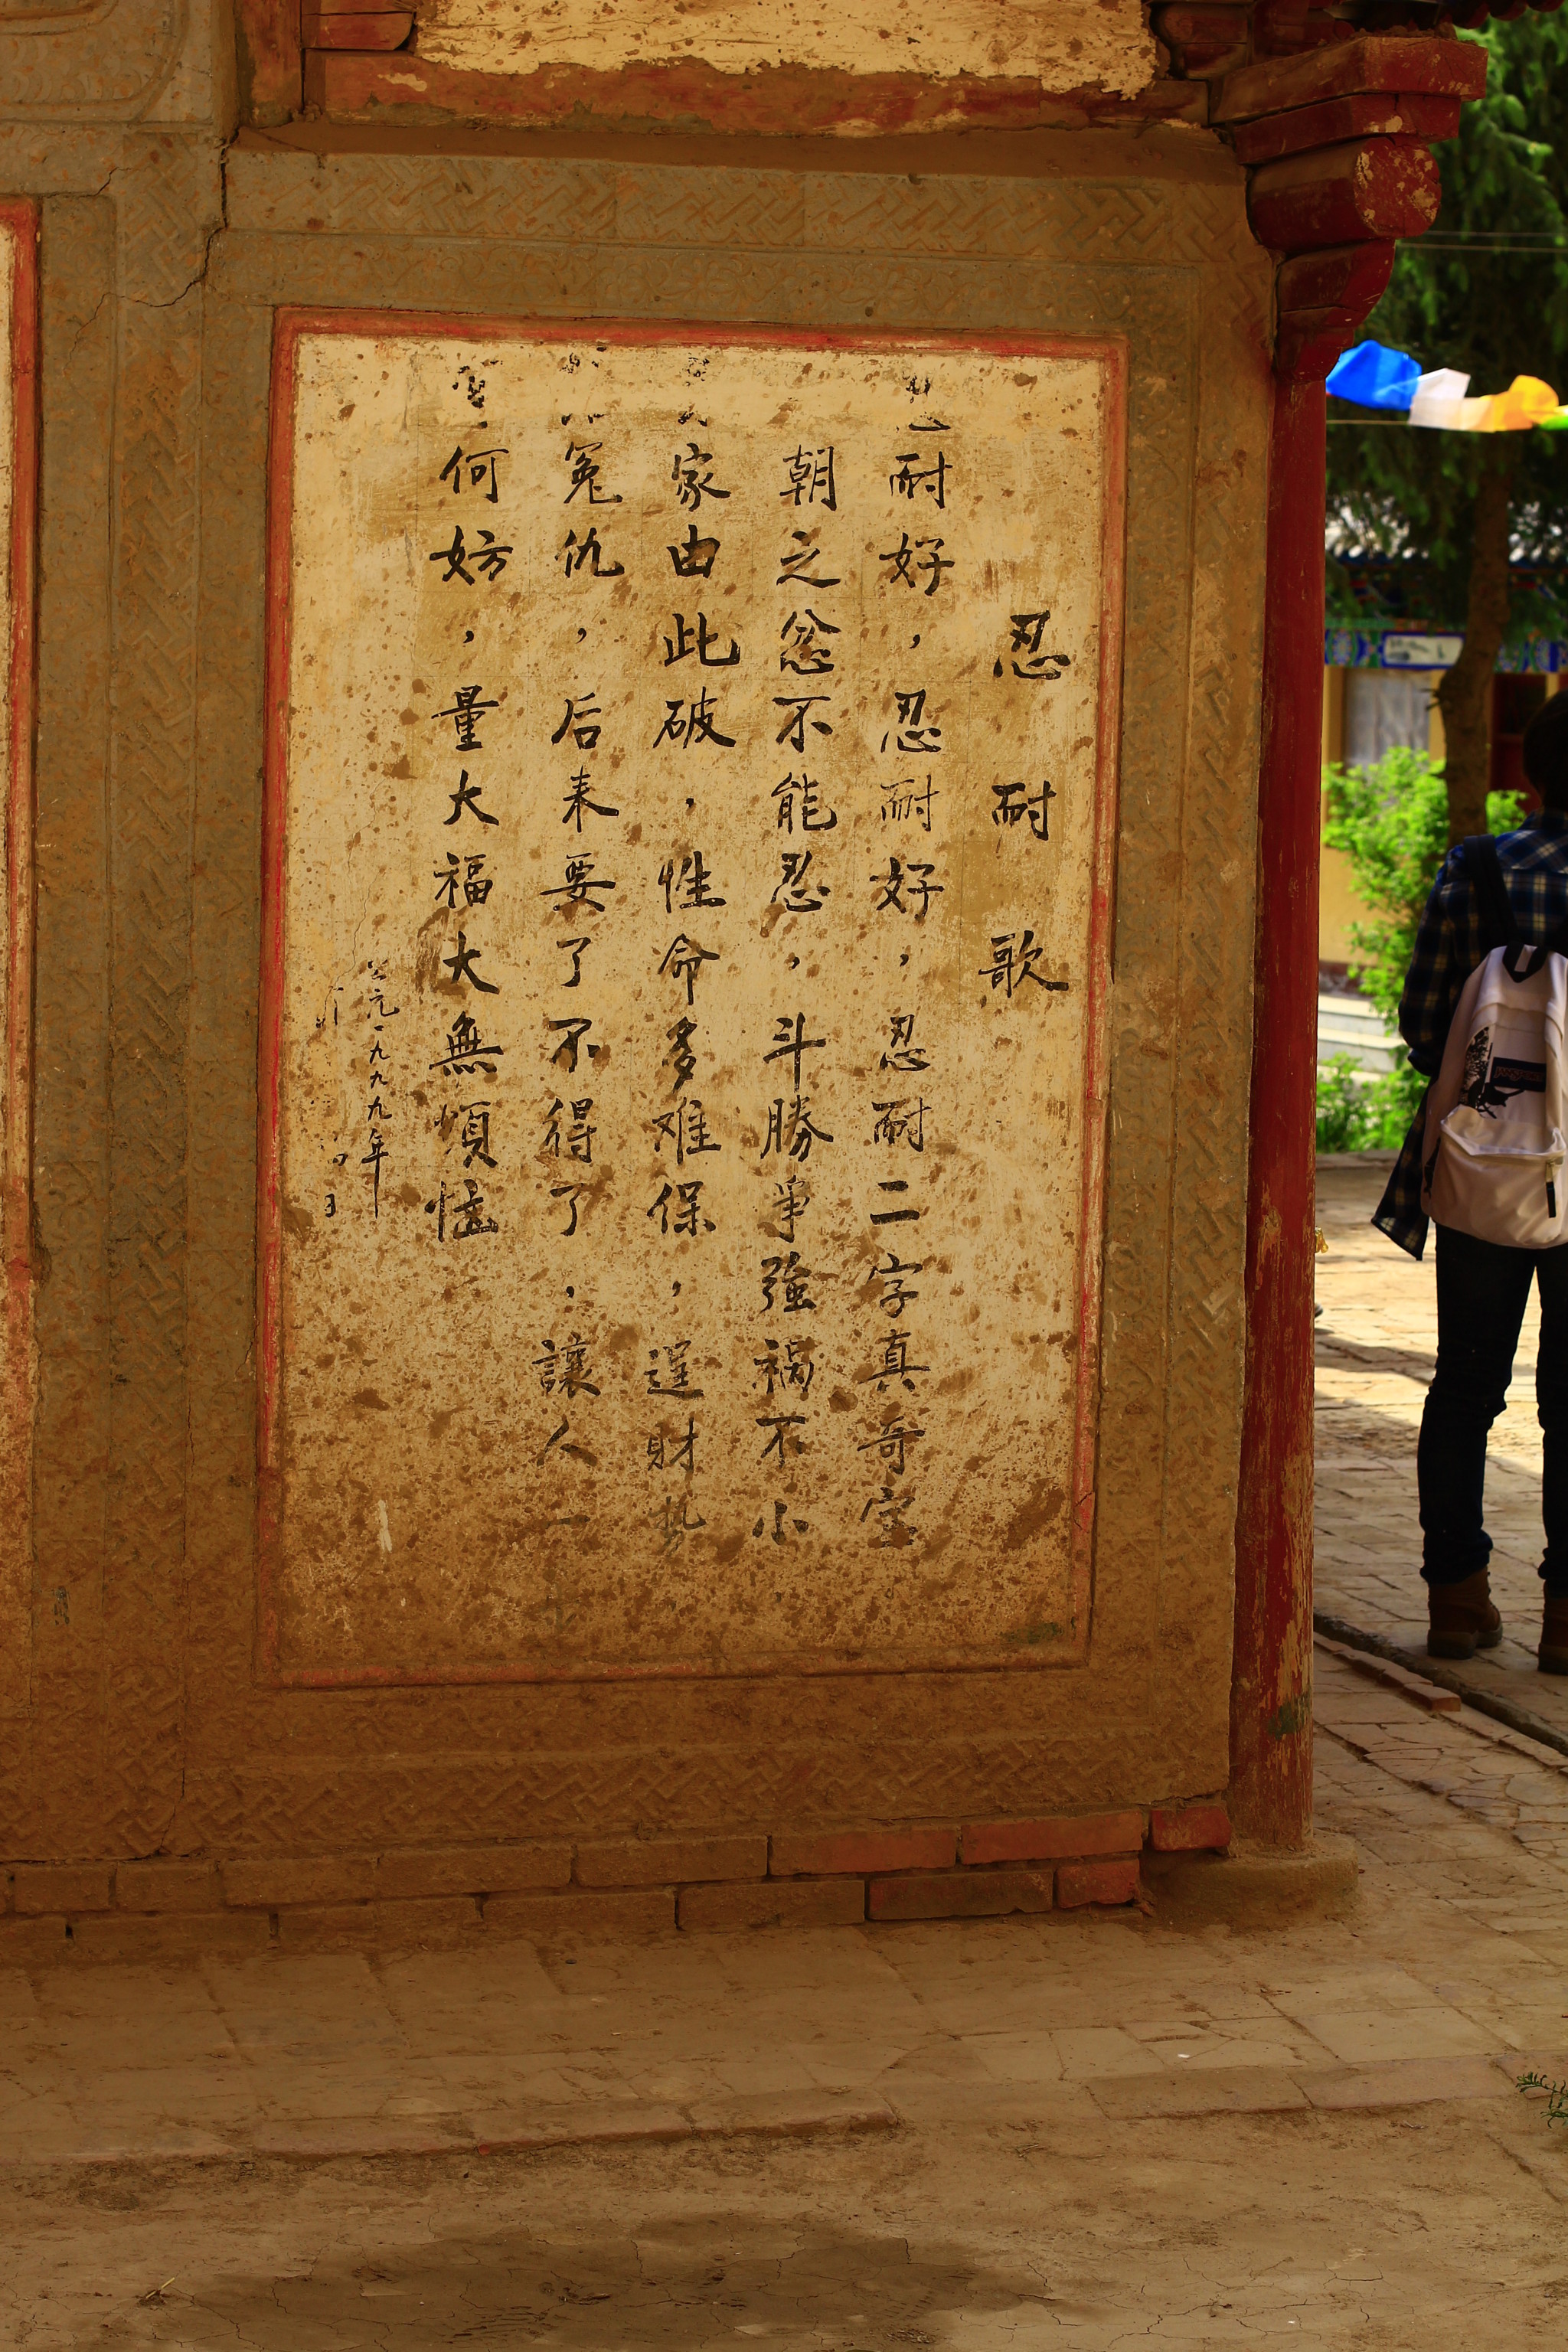 忍耐歌
忍耐好，忍耐好，忍耐二字真奇宝
朝之忿不能忍，斗勝爭強祸不小
家由此破，性命多难保，逞財势
冤仇，后来要了不得了，讓人一
何妨，量大福大無煩恼
公元一九九九年